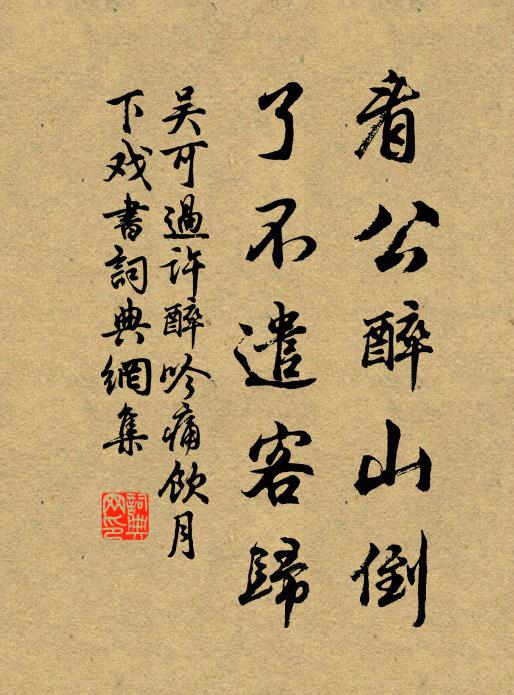 看公醉山倒
了不遣客歸
吴可過許醉吟痛飲月
下戏書詞典網集
詞典网印